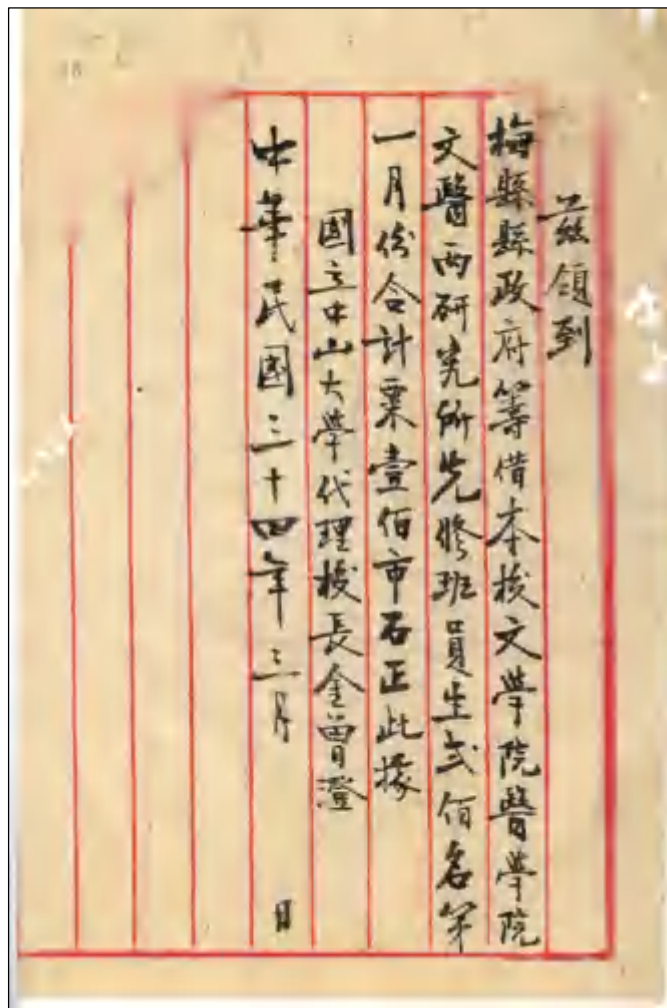 茲領到
梅縣縣政府籌借本校文學院醫學院
文醫兩研究所先修班員生弍佰名第
一月份合計粟壹佰市石正此據
國立中山大學代理校長金曾澄
中華民國三十四年三月　日